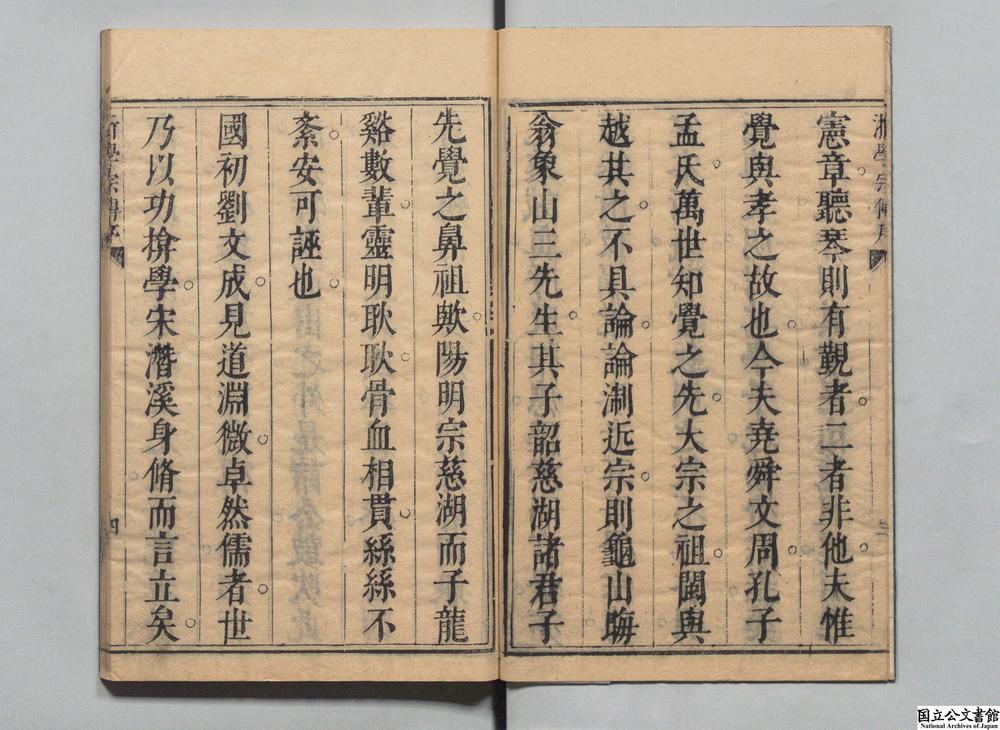 憲章聽琴則有觀者二者非他夫惟
覺與孝之故也今夫堯舜文周孔子
孟氏萬世知覺之先大宗之祖閩與
越其之不具論論淛近宗則龜山晦
翁象山三先生其子韶慈湖諸君子
先覺之鼻祖歟陽明宗慈湖而子龍
谿數輩靈明耿耿骨血相貫絲絲不
紊安可誣也
國初劉文成見道淵微卓然儒者世
乃以功揜學宋潛溪身脩而言立矣
四
国立公文書館
National Archives of Japan